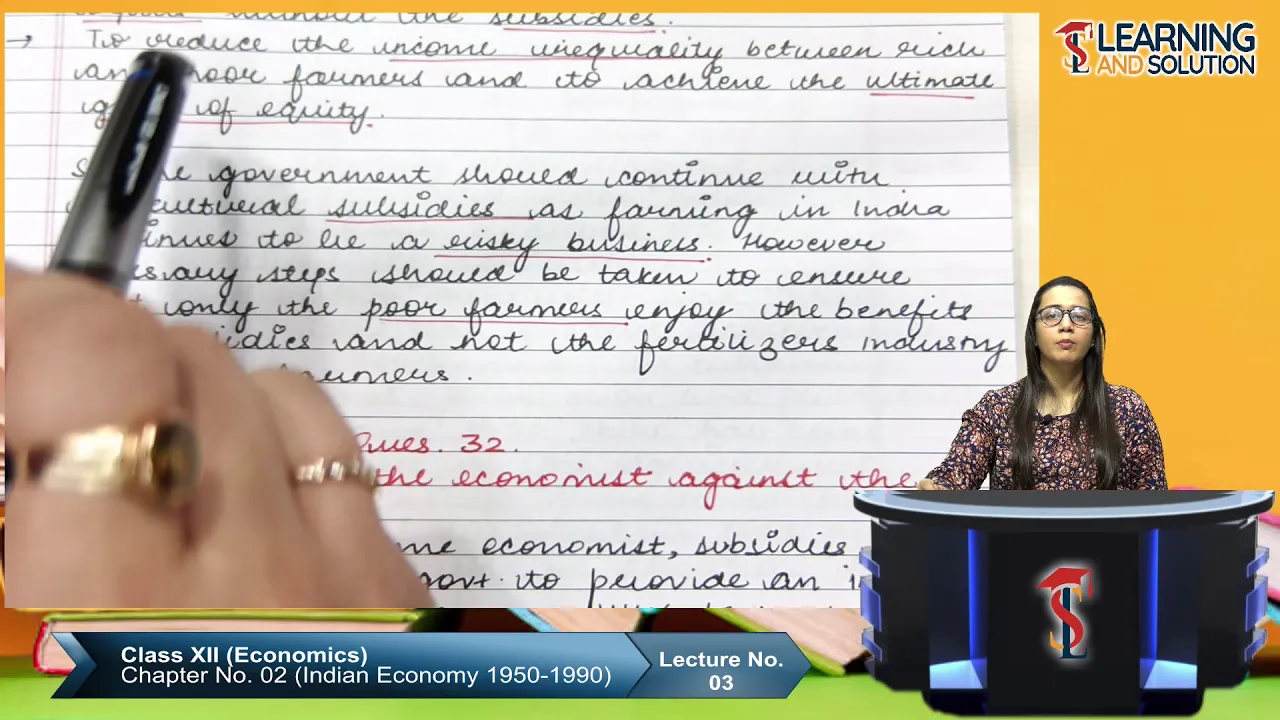 without the subsidies.
→ To reduce the income inequality between rich
poor farmers and to achieve the ultimate
of equity.
government should continue with
subsidies as farming in India
to be a risky business. However
steps should be taken to ensure
only the poor farmers enjoy the benefits
and not the fertilizers industry
farmers.
Ques. 32.
the economist against the
economist, subsidies
govt. to provide an
LEARNING
AND SOLUTION
Class XII (Economics)
Chapter No. 02 (Indian Economy 1950-1990)
Lecture No.
03